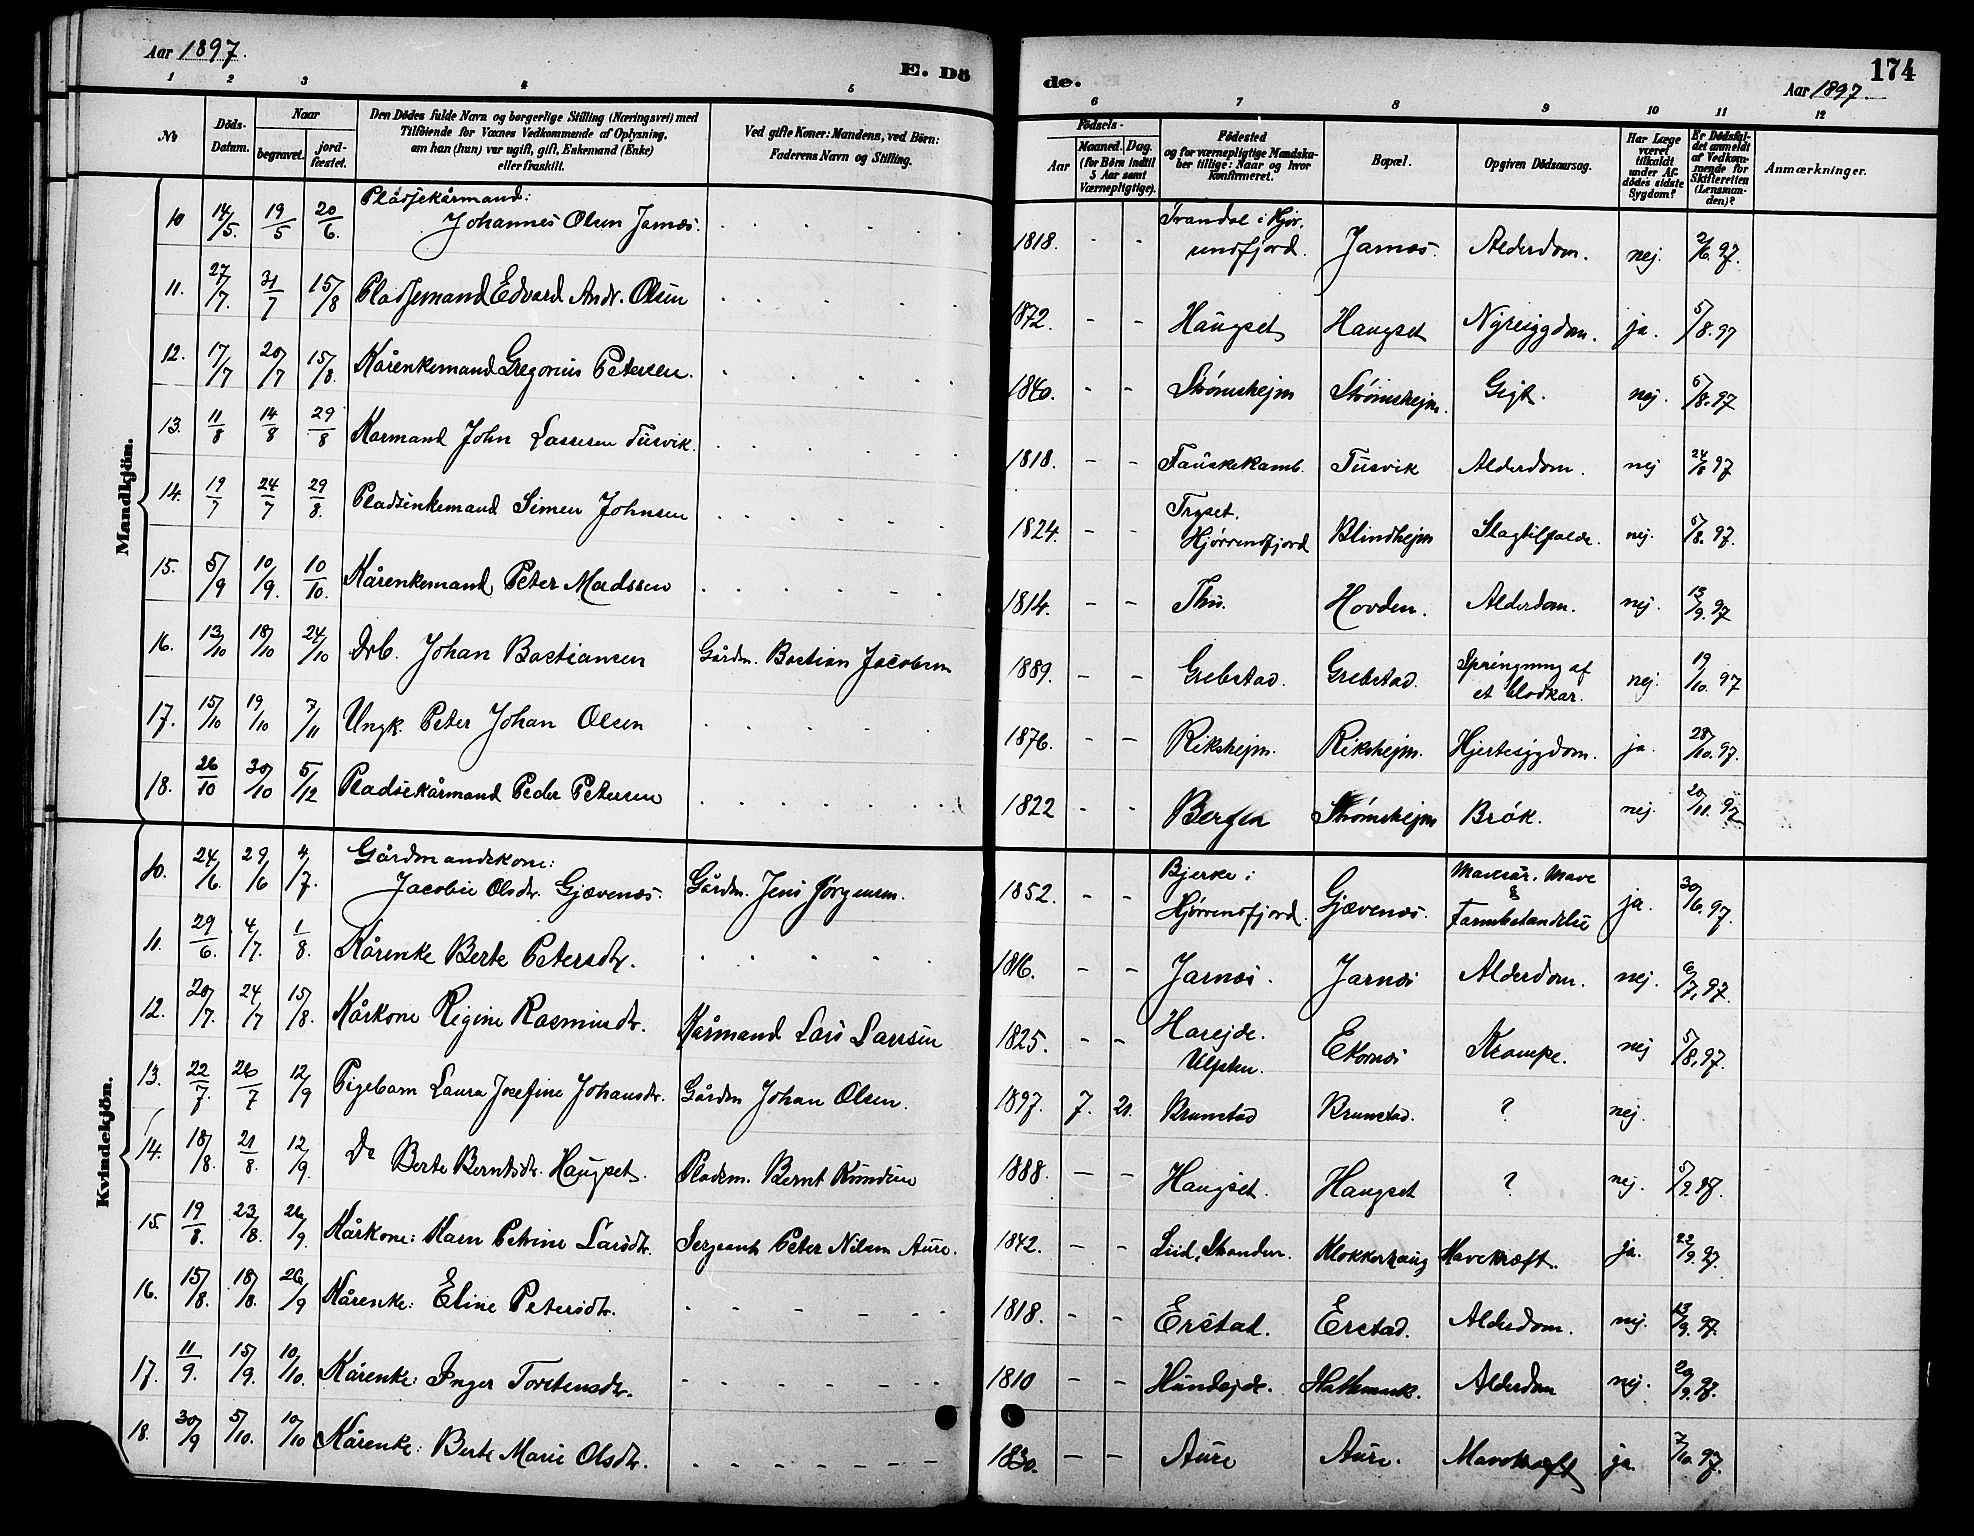 Aar 1897.
E. Dö
de.
Aar 1897.
174
1 2 3 4 5 6 7 8 9 10 11 12
No
Döds-
Datum.
Naar
begravet.
jord-
fæstet.
Den Dödes fulde Navn og borgerlige Stilling (Næringsvei) med
Tilföiende for Voxnes Vedkommende af Oplysning,
om han (hun) var ugift, gift, Enkemand (Enke)
eller fraskilt.
Ved gifte Koner: Mandens, ved Börn:
Faderens Navn og Stilling.
Födsels-
Aar
Maaned. Dag.
(for Börn indtil
5 Aar samt
Værnepligtige).
Födested
og for værnepligtige Mandska-
ber tillige: Naar og hvor
konfirmeret.
Bopæl.
Opgiven Dödsaarsag.
Har Læge
været
tilkaldt
under Af-
dödes sidste
Sygdom?
Er Dödsfal-
det anmeldt
af Vedkom-
mende for
Skifteretten
(Lensman-
den)?
Anmærkninger.
Mandkjön.
10 14/5. 19/5 20/6. Pladsekårmand:
Johannes Olsen Jarnæs. 1818. - - Trandal i Hjør-
undfjord. Jarnæs. Alderdom. nej. 2/6.97.
11. 27/7. 31/7 15/8 Pladsemand Edvard Andr. Olsen 1872. - - Haugset Haugset Nyresygdom. ja. 5/8.97
12. 17/7 20/7 15/8. Kårenkemand Gregorius Petersen. 1840. - - Strømshejm Strømshejm. Gigt. nej. 5/8.97
13. 11/8 14/8 29/8 Karmand John Lassesen Tusvik. 1818. - - Fauskekamb. Tusvik Alderdom. nej 24/8 97
14. 19/7 24/7 29/8. Pladsenkemand Simen Johnsen 1824. - - Tryset.
Hjørrendfjord Blindhejm Slagtilfælde. nej. 5/8.97.
15. 5/9 10/9. 10/10. Kårenkemand Peter Madssen 1814. - - Thu. Hovden. Alderdom. nej. 13/9.97
16. 13/10 18/10 24/10 Drb. Johan Bastiansen Gårdm. Bastian Jacobsen 1889. - - Grebstad. Grebstad. Springning af
et blodkar. nej. 19/10.97
17. 15/10 19/10 7/11 Ungk. Peter Johan Olsen 1876. - - Rikshejm. Rikshejm. Hjertesygdom. ja. 28/10.97.
18. 26/10 30/10 5/12 Pladsekårmand Peder Petersen 1822 - - Bergen Strømshejm Brok. nej. 20/11.97
Kvindekjön.
10. 24/6. 29/6 4/7. Gårdmandskone:
Jacobie Olsdtr. Gjævenæs. Gårdm. Jens Jørgensen. 1852. - - Bjerke i
Hjørrendfjord. Gjævenæs. Mavesår. Mave
&
Tarmbetændelse ja. 30/6.97.
11. 29/6. 4/7. 1/8. Kårenke Berte Petersdtr. 1816. - - Jarnæs. Jarnæs Alderdom. nej. 6/7.97.
12. 20/7. 24/7 15/8. Kårkone Regine Rasmusdtr. Kårmand Lars Larsen 1825. - - Harejde.
Ulfsten. Ekornæs Krampe. nej 5/8.97.
13. 22/7. 26/7 12/9 Pigebarn Laura Josefine Johansdtr. Gårdm Johan Olsen. 1897. 7. 21. Brunstad Brunstad. ? nej.
14. 18/8. 21/8. 12/9. Do Berte Berntsdtr. Haugset. Pladsm. Bernt Knudsen 1888. - - Haugset. Haugset ? nej. 5/9.97.
15. 19/8. 23/8. 26/9. Kårkone: Karn Petrine Larsdtr. Sergeant Peter Nilsen Aure. 1842. - - Liid, Stranden. Klokkerhaug Mavekræft. ja. 22/9.97.
16. 15/8. 18/8. 26/9 Kårenke: Eline Petersdtr. 1818. - - Erstad. Erstad. Alderdom. nej. 13/9.97.
17. 11/9. 15/9. 10/10. Kårenke: Inger Torstensdtr. 1810 - - Hundejde. Hathmark. Alderdom nej. 20/9.97.
18. 30/9 5/10. 10/10 Kårenke: Berte Marie Olsdtr. 1830. - - Aure Aure. Mavekræft ja. 7/10.97.